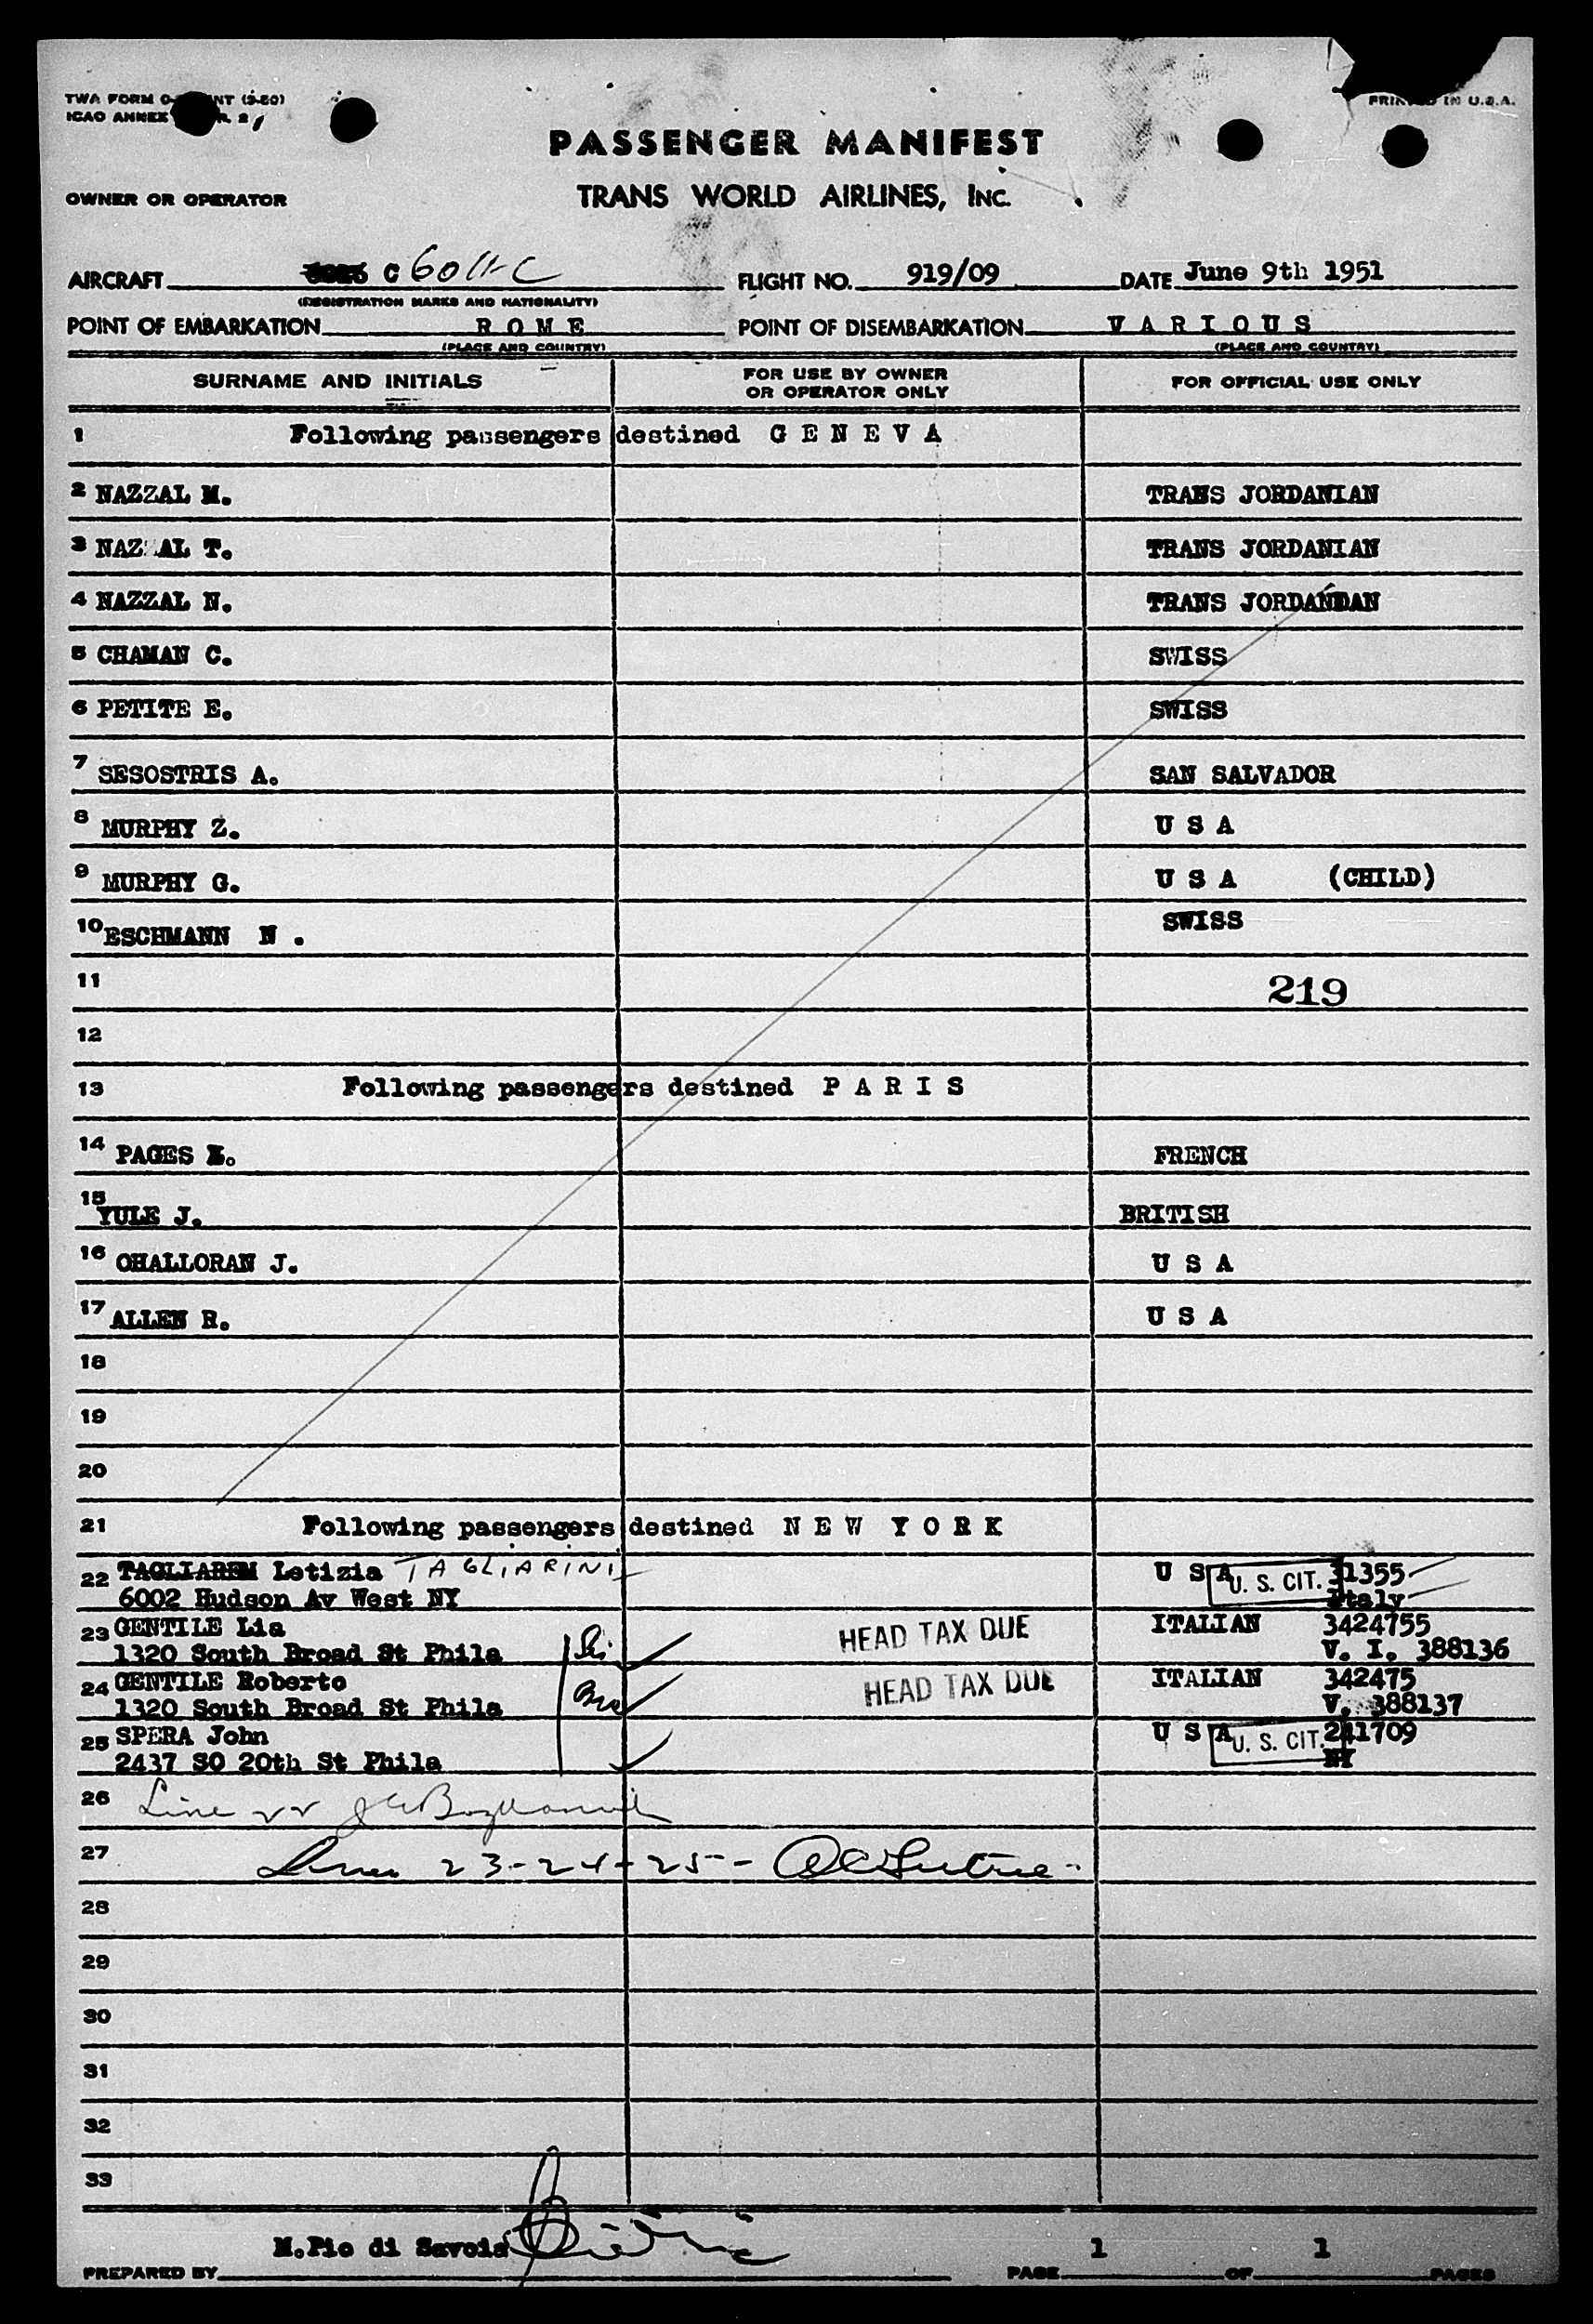 TWA FORM
ICAO ANNEX
PRINTED IN U.S.A.
PASSENGER MANIFEST
OWNER OR OPERATOR
TRANS WORLD AIRLINES, INC.
AIRCRAFT C 6011-C FLIGHT NO. 919/09 DATE June 9th 1951
(REGISTRATION MARKS AND NATIONALITY)
POINT OF EMBARKATION R O M E POINT OF DISEMBARKATION V A R I O U S
(PLACE AND COUNTRY) (PLACE AND COUNTRY)
SURNAME AND INITIALS FOR USE BY OWNER OR OPERATOR ONLY FOR OFFICIAL USE ONLY
1 Following passengers destined G E N E V A
2 NAZZAL M. TRANS JORDANIAN
3 NAZ AL T. TRANS JORDANIAN
4 NAZZAL N. TRANS JORDANDAN
5 CHAMAN C. SWISS
6 PETITE E. SWISS
7 SESOSTRIS A. SAN SALVADOR
8 MURPHY Z. U S A
9 MURPHY G. U S A (CHILD)
10 ESCHMANN N . SWISS
11 219
12
13 Following passengers destined P A R I S
14 PAGES FRENCH
15 YULE J. BRITISH
16 OHALLORAN J. U S A
17 ALLEN R. U S A
18
19
20
21 Following passengers destined N E W Y O R K
22 TAGLIAREM Letizia TAGLIARINI U S A U. S. CIT. 31355
6002 Hudson Av West NY Italy
23 GENTILE Lia HEAD TAX DUE ITALIAN 3424755
1320 South Broad St Phila V. I. 388136
24 GENTILE Roberto HEAD TAX DUE ITALIAN 342475
1320 South Broad St Phila V. 388137
25 SPERA John U S A U. S. CIT. 241709
2437 SO 20th St Phila NY
26 Line 22
27 Lines 23-24-25-
28
29
30
31
32
33
M.Pio di Savoia 1 1
PREPARED BY PAGE OF PAGES